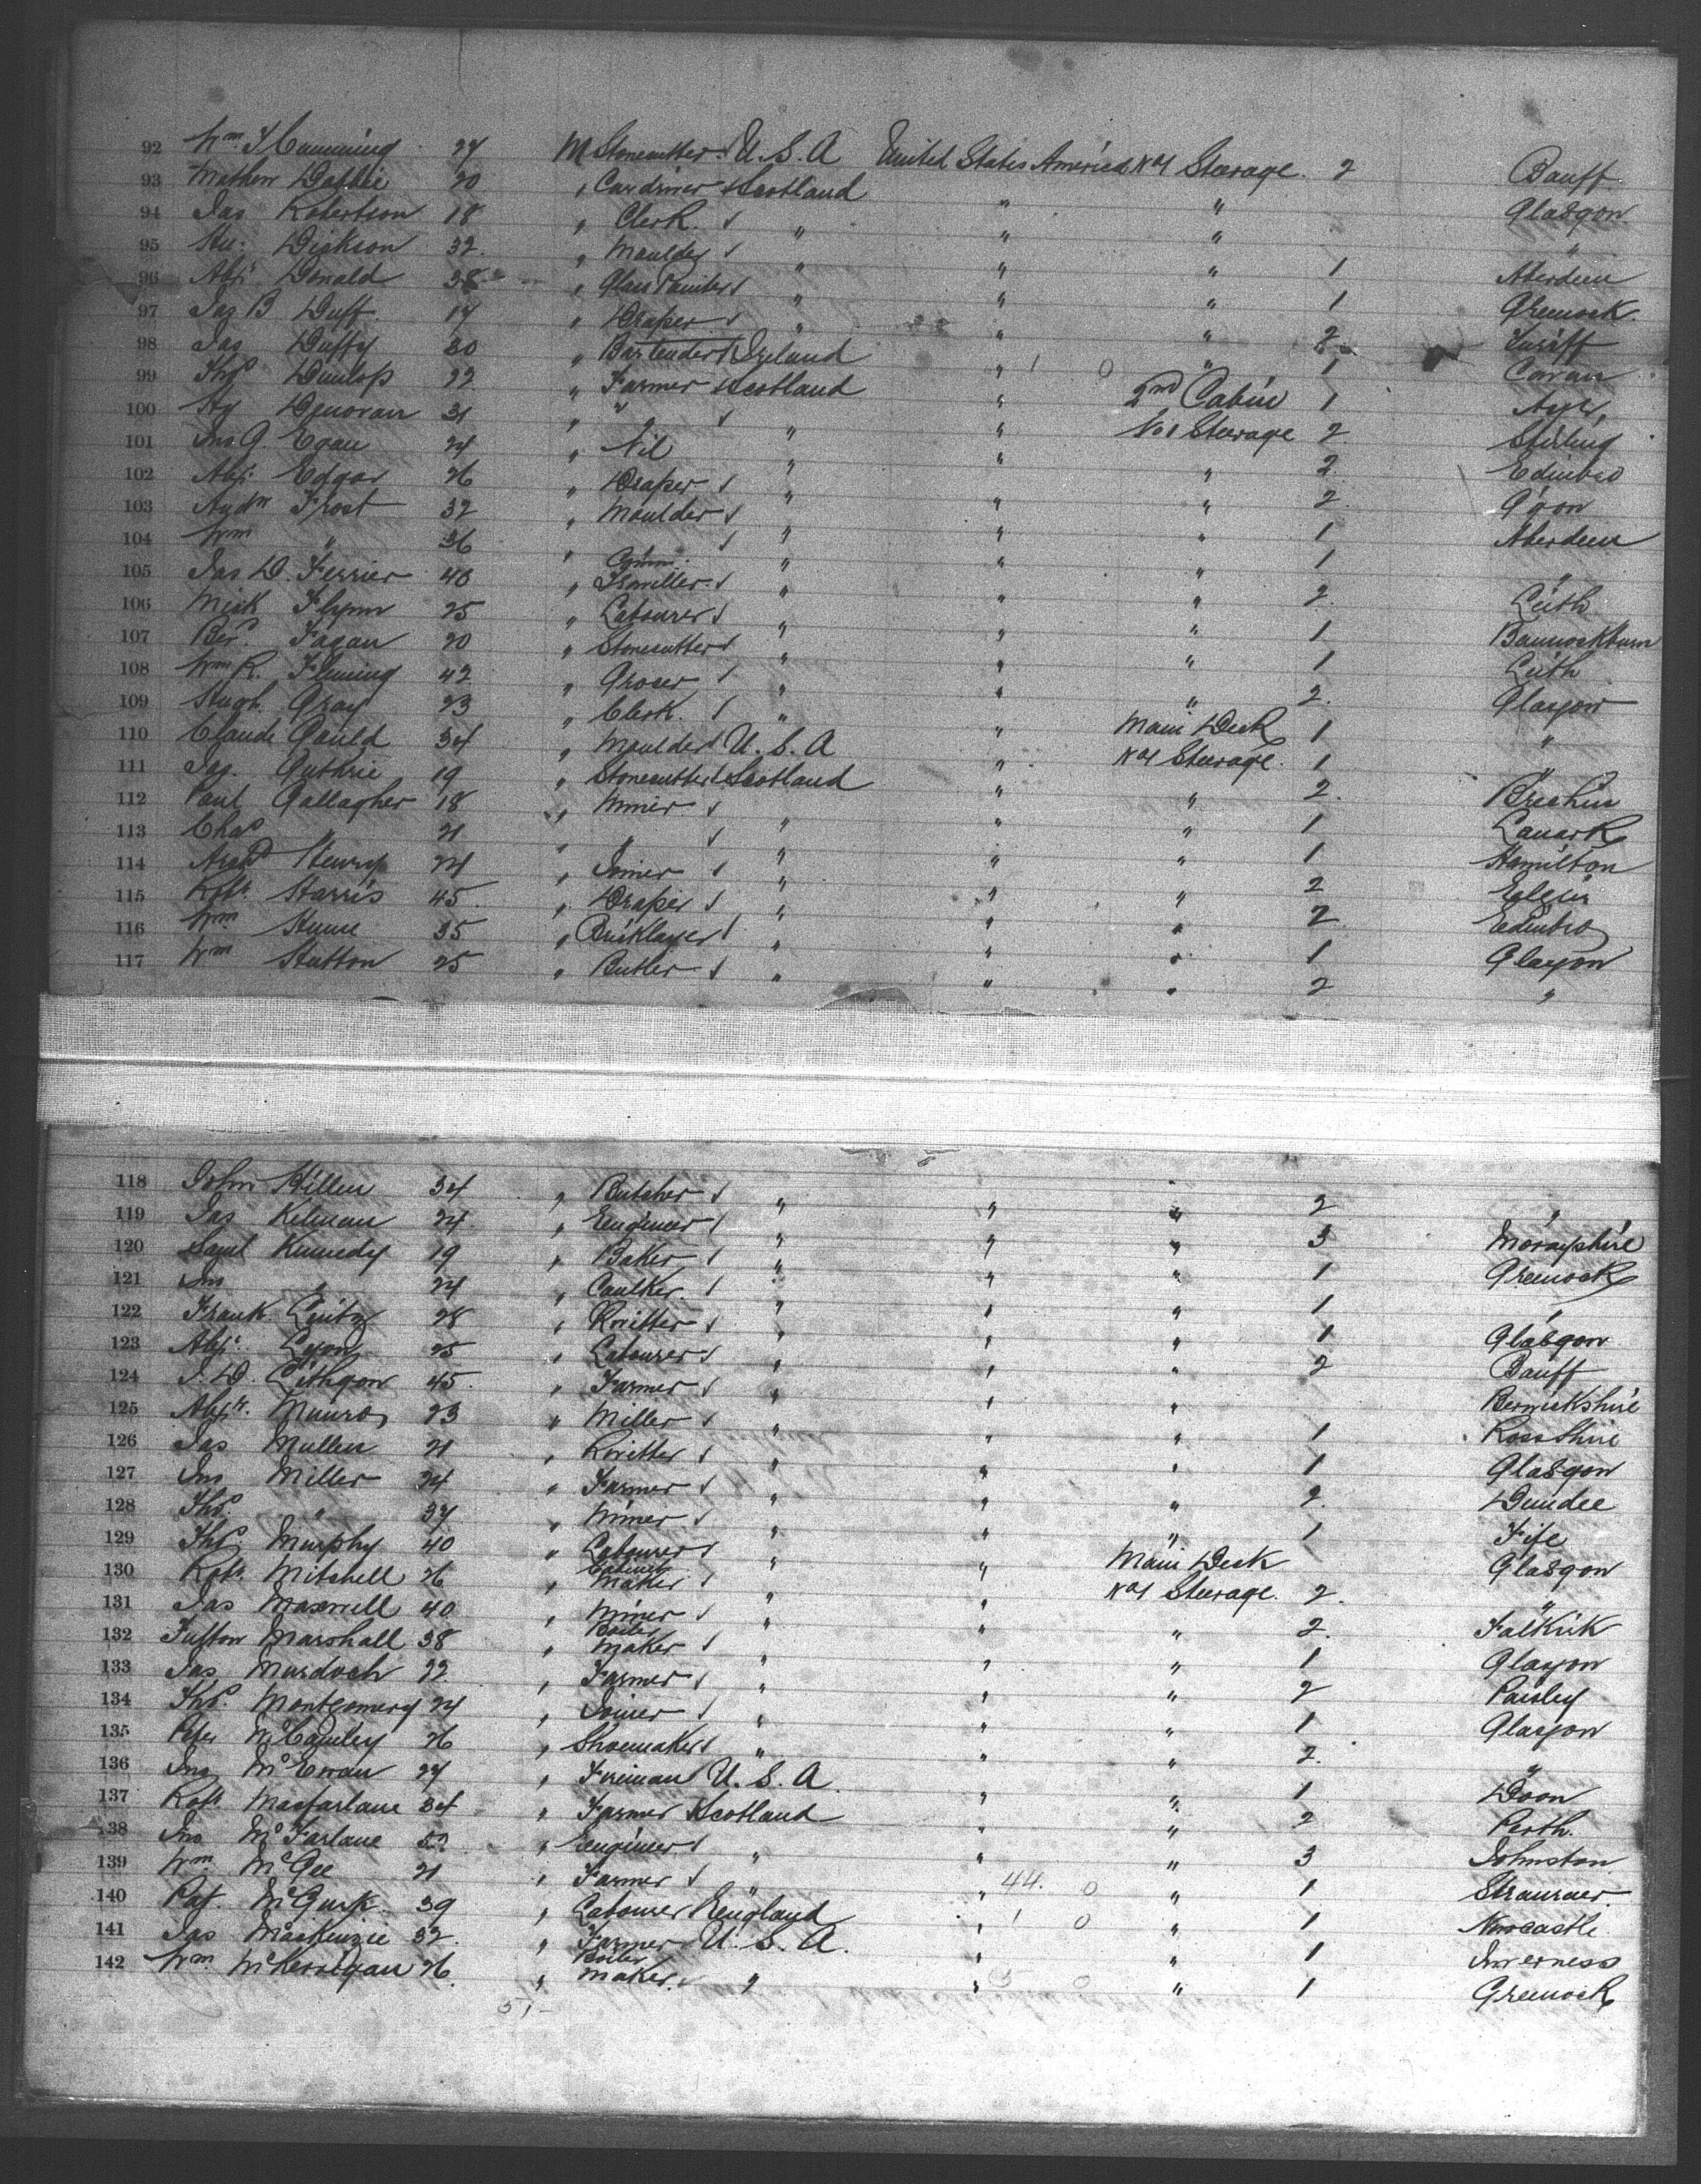 92 Wm. Y Cumming 27 M Stonecutter U.S.A United States America No 1 Steerage. 2 Banff
93 Mathew Dobbie 20 " Cardriver Scotland " " Glasgow
94 Jas Robertson 18 " Clerk " " " "
95 Hu. Dickson 32 " Moulder " " " 1 Aberdeen
96 Alexr Donald 38 " Glass Painter " " " 1 Greenock.
97 Jas B Duff. 17 " Draper " " " 2 Turiff
98 Jas Duffy 30 " Bartender Ireland " 1 0 " 1 Cavan
99 Thos Dunlop 22 " Farmer Scotland " 2nd Cabin 1 Ayr,
100 Hy Donovan 31 " " " " No 1 Steerage 2 Stirling
101 Jno. G Egan 24 " Nil " " " 2 Edinbro
102 Alexr. Edgar 26 " Draper " " " 2 G'gow
103 Andw Frost 32 " Moulder " " " 1 Aberdeen
104 Wm " 36 " " " " 1 "
105 Jas D. Ferrier 40 " Comm. Traveller " " " 2 Leith
106 Mick Flynn 25 " Labourer " " " 1 Bannockburn
107 Ber. Fagan 20 " Stonecutter " " " 1 Leith
108 Wm R. Fleming 42 " Grocer " " " 2. Glasgow
109 Hugh. Gray 23 " Clerk. " " Main Deck 1 "
110 Claude Gauld 34 " Moulder U.S.A " No 1 Steerage. 1 "
111 Jas. Guthrie 19 " Stonecutter Scotland " " 2. Brechin
112 Paul Gallagher 18 " Miner " " " 1 Lanark
113 Chas " 21 " " " " " 1 Hamilton
114 Archd Henry 24 " Joiner " " " 2 Elgin
115 Robt. Harris 45 " Draper " " " 2 Edinbro
116 Wm Hume 35 " Bricklayer " " " 1 Glasgow
117 Wm Hutton 25 " Butler " " " 2 "
118 John Killen 34 " Butcher " " " 2 "
119 Jas Kilman 24 " Engineer " " " 3 Morayshire
120 Saml Kennedy 19 " Baker " " " 1 Greenock
121 Jno " 24 " Caulker. " " " 1 "
122 Frank. Leitz 28 " Rivitter " " " 1 Glasgow
123 Alexr. Lyon 25 " Labourer " " " 2 Banff
124 J. D. Lithgow 45 " Farmer " " " Berwickshire
125 Alexr. Munro 23 " Miller " " " 1 Ross Shire
126 Jas Mullen 21 " Rivitter " " " 1 Glasgow
127 Jno Miller 24 " Farmer " " " 2. Dundee
128 Thos. " 37 " Miner " " " 1 Fife
129 Thos. Murphy 40 " Labourer " " Main Deck Glasgow
130 Robt. Mitchell 26 " Cabinet Maker " " No 1 Steerage. 2. "
131 Jas Maxwell 40 " Miner " " " 2. Falkirk
132 Fulton Marshall 38 " Boiler Maker " " " 1 Glasgow
133 Jas Murdoch 22. " Farmer " " " 2 Paisley
134 Thos. Montgomery 24 " Joiner " " " 1 Glasgow
135 Peter McCauley 26 " Shoemaker " " " 2. "
136 Jno McEwan 27 " Fireman U.S.A " " 1 Doon
137 Robt. Macfarlane 34 " Farmer Scotland " " 2 Perth.
138 Jno McFarlane 52 " Engineer " " " 3 Johnston
139 Wm. McGee 21 " Farmer " " 44. 0 " 1 Stranraer
140 Pat. McGurk. 39 " Labourer England " 1 0 " 1 Newcastle
141 Jas MacKenzie 32. " Farmer U.S.A. " " 1 Inverness
142 Wm. McKerrigan 26. " Boiler Maker. " " 0 " 1 Greenock
51-